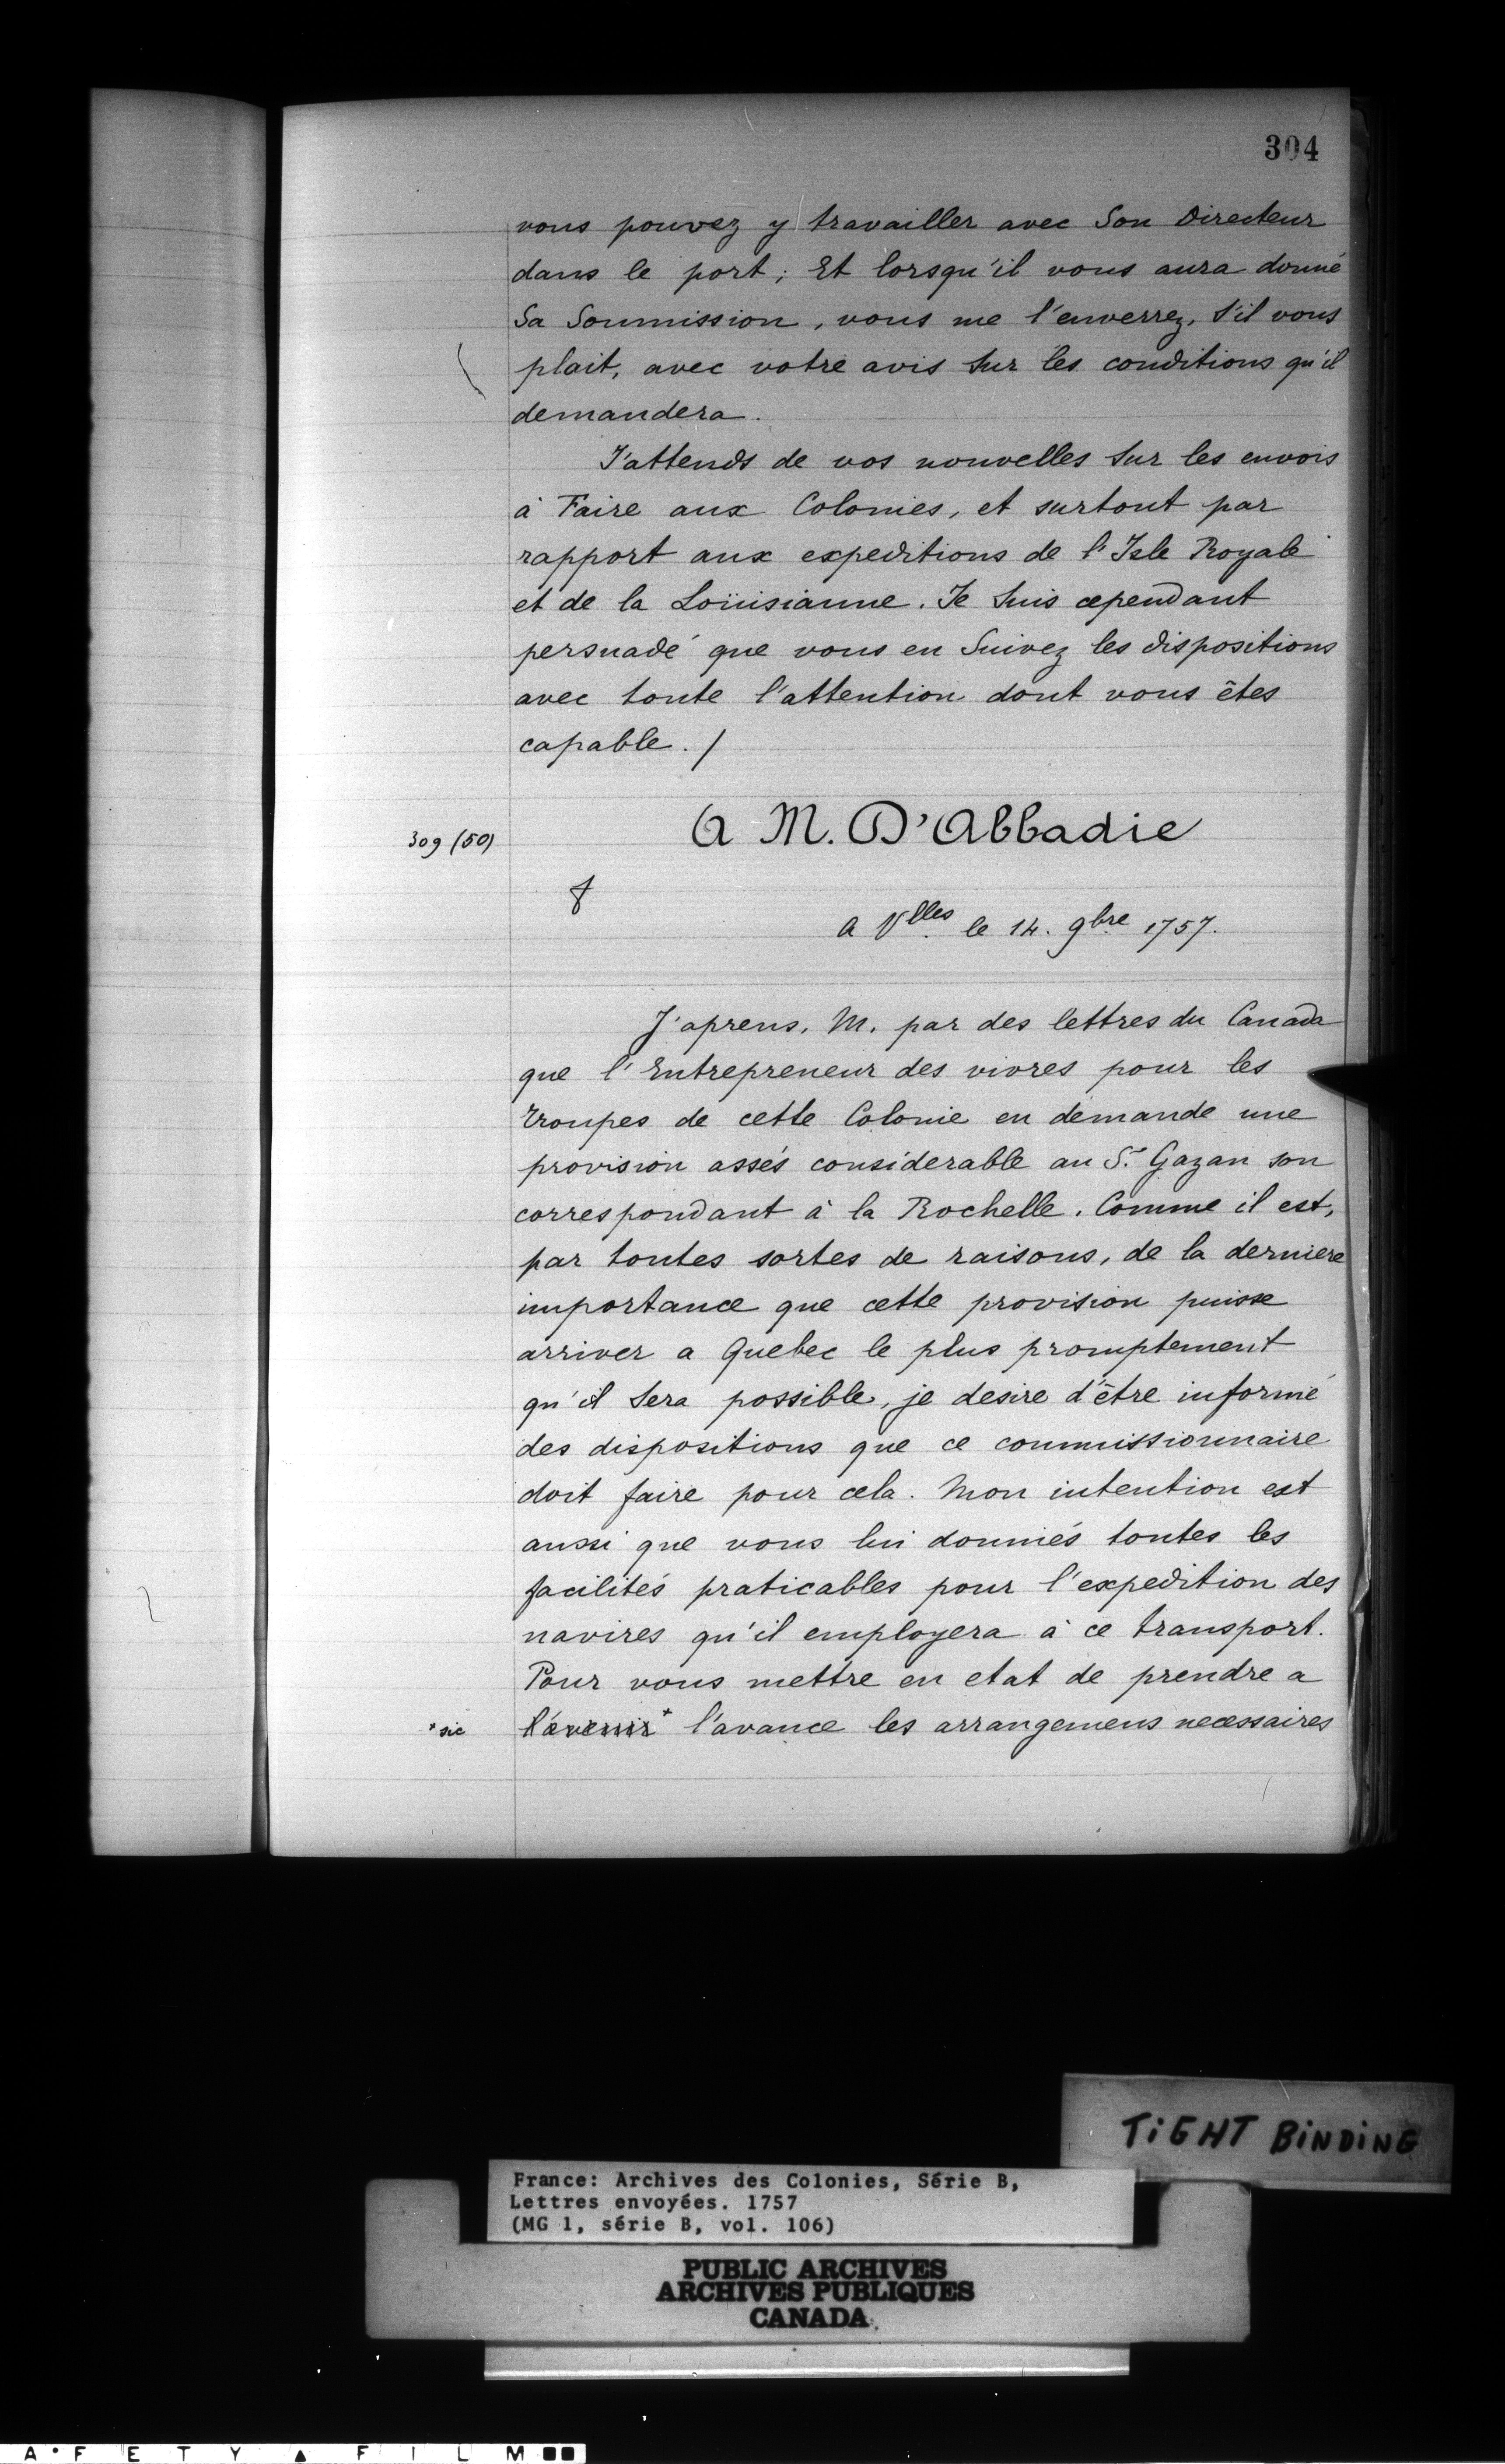 304
vous pouvez y travailler avec Son Directeur
dans le port; Et lorsqu'il vous aura donné
Sa Soumission, vous me l'enverrez, S'il vous
plait, avec votre avis Sur les conditions qu'il
demandera.
J'attends de vos nouvelles Sur les envois
à Faire aux Colonies, et surtout par
rapport aux expeditions de l'Isle Royale
et de la Loüisianne. Je Suis cependant
persuadé que vous en Suivez les dispositions
avec toute l'attention dont vous êtes
capable. /
309 (50)
A M. D'Abbadie
A Vlles le 14. 9bre 1757.
J'aprens, M. par des lettres du Canada
que l'Entrepreneur des vivres pour les
troupes de cette Colonie en demande une
provision assés considerable au Sr. Gazan son
correspondant à la Rochelle. Comme il est,
par toutes sortes de raisons, de la derniere
importance que cette provision puisse
arriver a Quebec le plus promptement
qu'il Sera possible, je desire d'être informé
des dispositions que ce commissionnaire
doit faire pour cela. Mon intention est
aussi que vous lui donniés toutes les
facilités praticables pour l'expedition des
navires qu'il employera à ce transport.
Pour vous mettre en etat de prendre a
*sic l'avenir* l'avance les arrangemens necessaires
TiGHT BiNDiNG
France: Archives des Colonies, Série B,
Lettres envoyées. 1757
(MG 1, série B, vol. 106)
PUBLIC ARCHIVES
ARCHIVES PUBLIQUES
CANADA
AFETY FILM